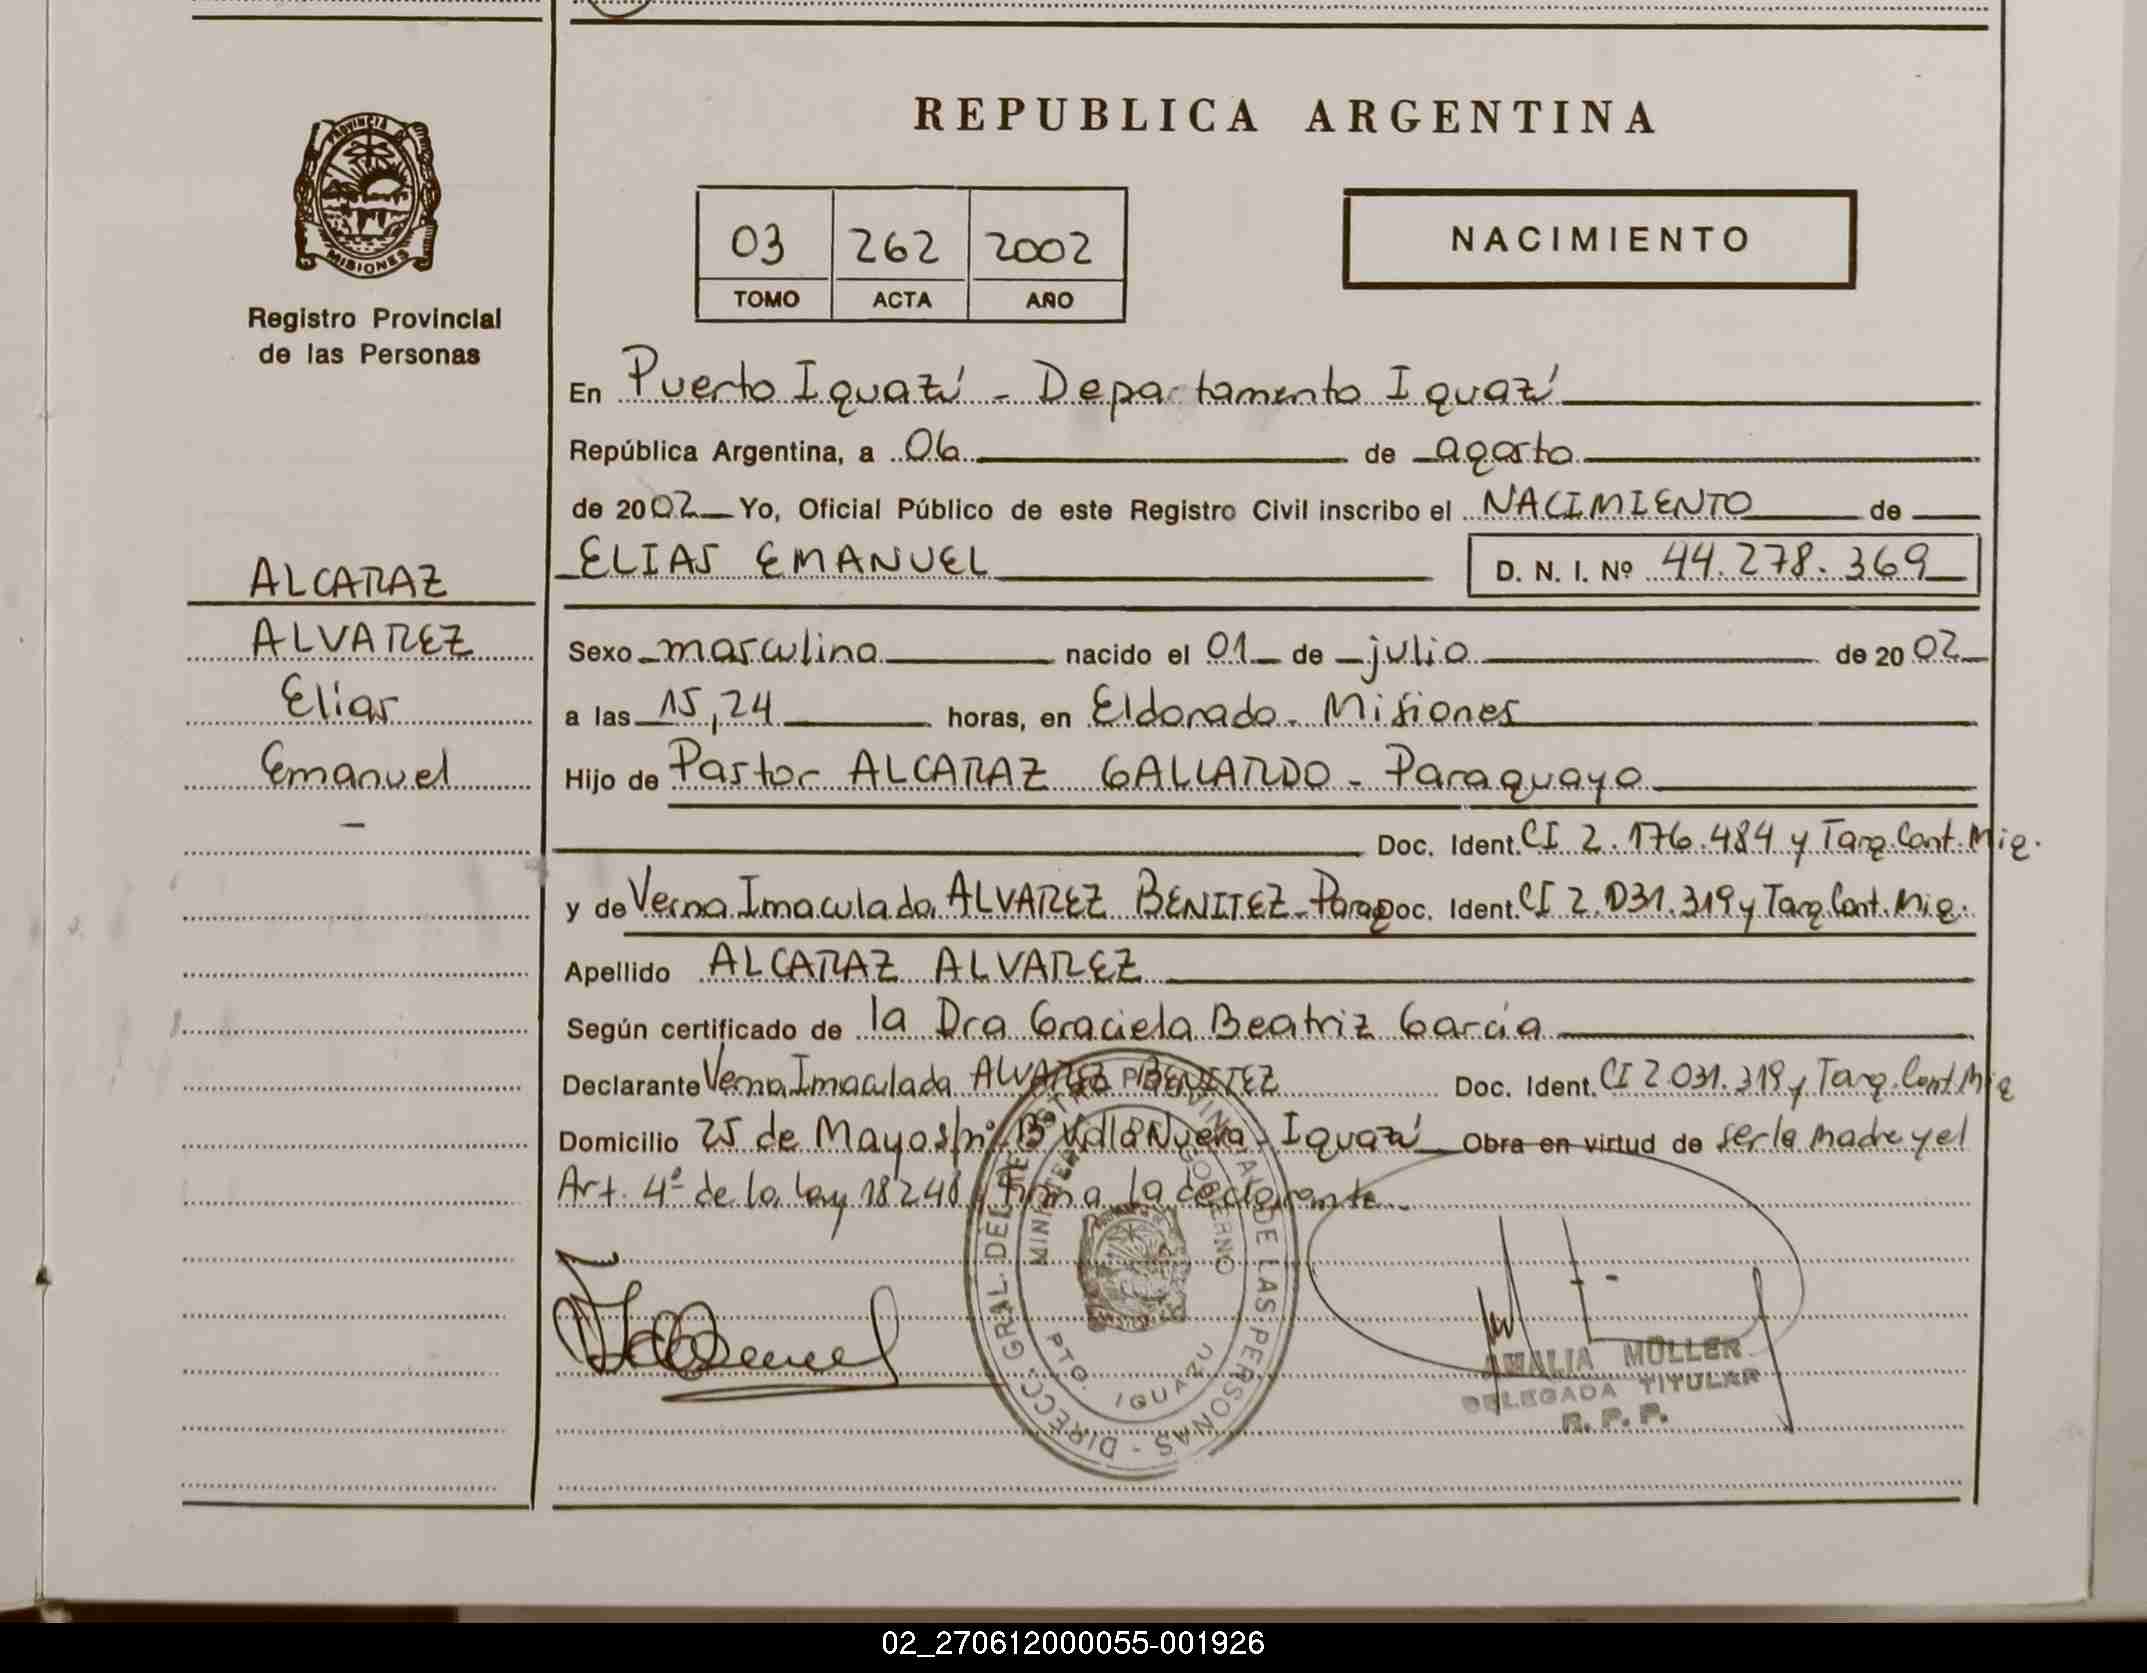 REPUBLICA ARGENTINA
PROVINCIA DE
MISIONES
Registro Provincial
de las Personas
03 262 2002
TOMO ACTA AÑO
NACIMIENTO
En Puerto Iguazú - Departamento Iguazú
República Argentina, a 06 de agosto
de 2002 Yo, Oficial Público de este Registro Civil inscribo el NACIMIENTO de
ELIAS EMANUEL D. N. I. Nº 44.278.369
ALCARAZ
ALVAREZ
Elias
Emanuel
Sexo masculino nacido el 01 de julio de 2002
a las 15,24 horas, en Eldorado - Misiones
Hijo de Pastor ALCARAZ GALLARDO - Paraguayo
Doc. Ident. CI 2.176.484 y Tarq. Cont. Mig.
y de Verna Imaculada ALVAREZ BENITEZ - Parag Doc. Ident. CI 2.031.319 y Tarq. Cont. Mig.
Apellido ALCARAZ ALVAREZ
Según certificado de la Dra Graciela Beatriz García
Declarante Verna Imaculada ALVAREZ BENITEZ Doc. Ident. CI 2.031.319 y Tarq. Cont. Mig
Domicilio 25 de Mayo s/nº Bº Villa Nueva - Iguazú Obra en virtud de ser la madre y el
Art. 4º de la Ley 18248 y firma la declarante.
DIRECC. GRAL. DEL REGISTRO PROVINCIAL DE LAS PERSONAS -
MINISTERIO GOBIERNO
PTO. IGUAZU
AMALIA MÜLLER
DELEGADA TITULAR
R. P. P.
02_270612000055-001926